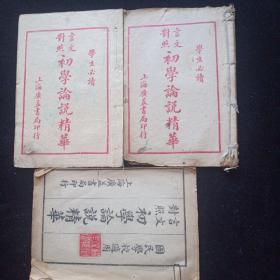 學生必讀
言文對照
初學論說精華
上海廣益書局印行
學生必讀
言文對照
初學論說精華
上海廣益書局印行
國民學校適用
言文對照
初學論說精華
上海廣益書局印行